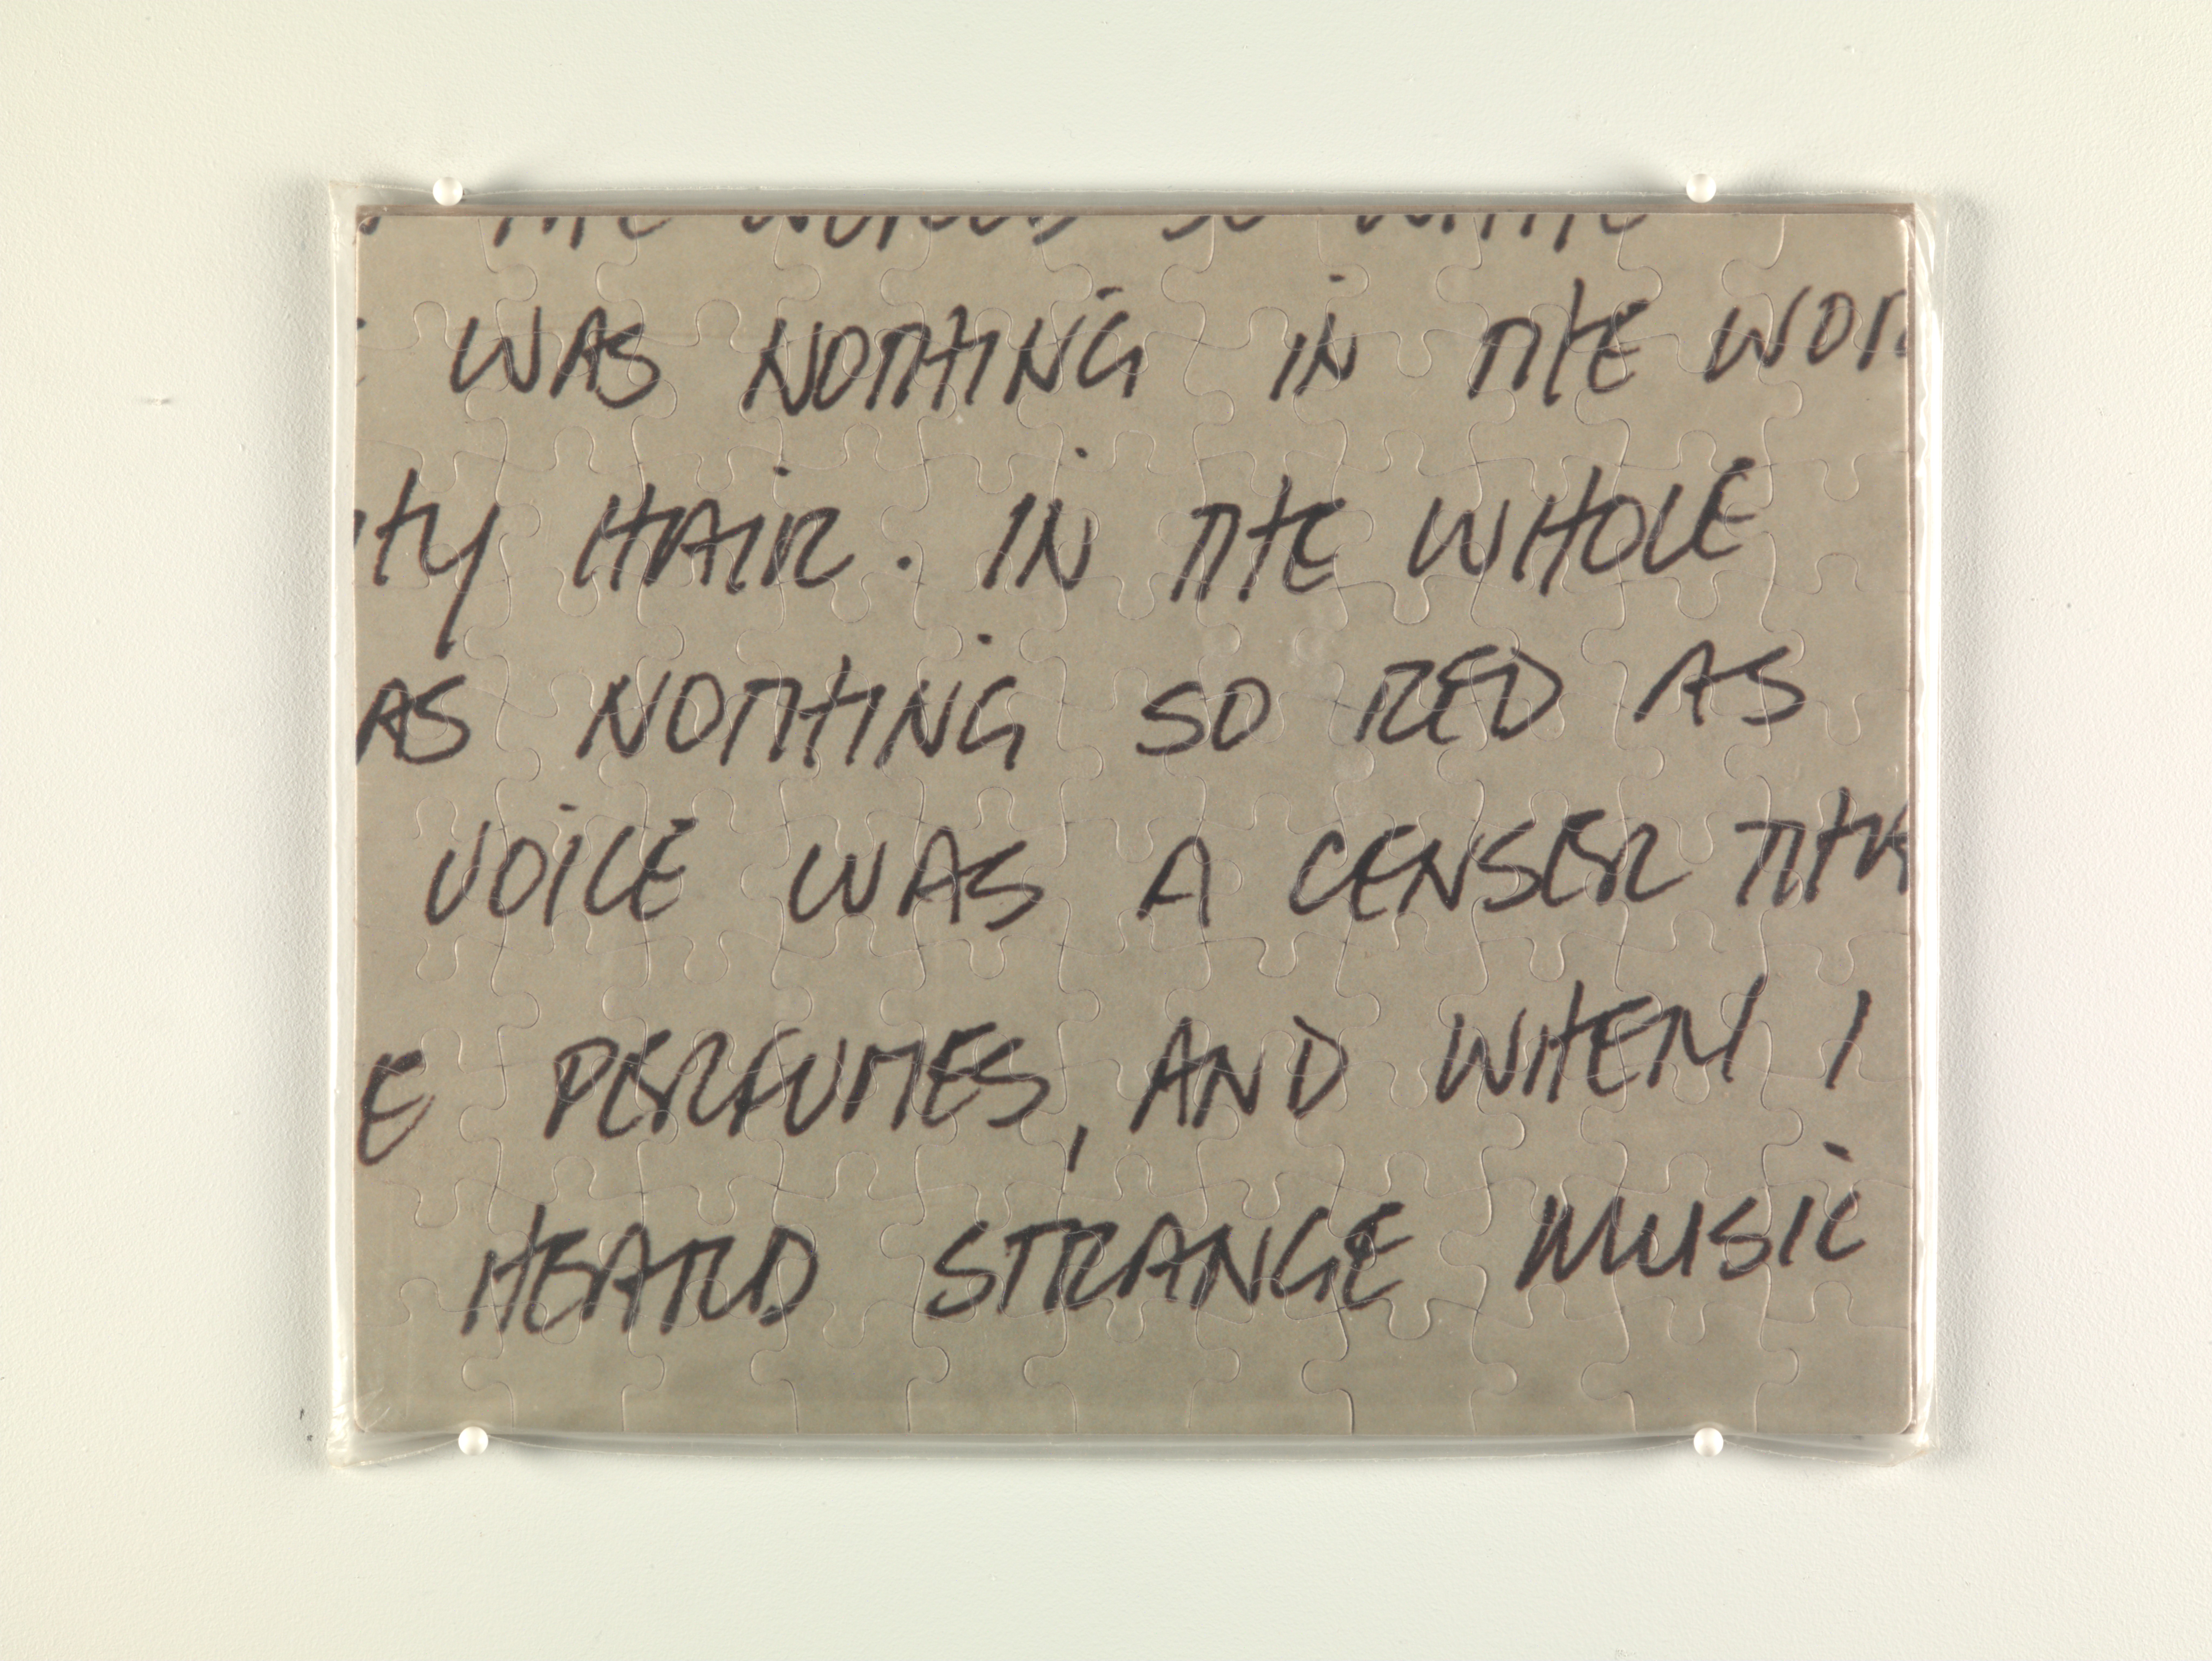 THE WORLD SO WHITE
WAS NOTHING IN THE WOR
THY HAIR. IN THE WHOLE
AS NOTHING SO RED AS
VOICE WAS A CENSER THA
E PERFUMES, AND WHEN I
HEARD STRANGE MUSIC